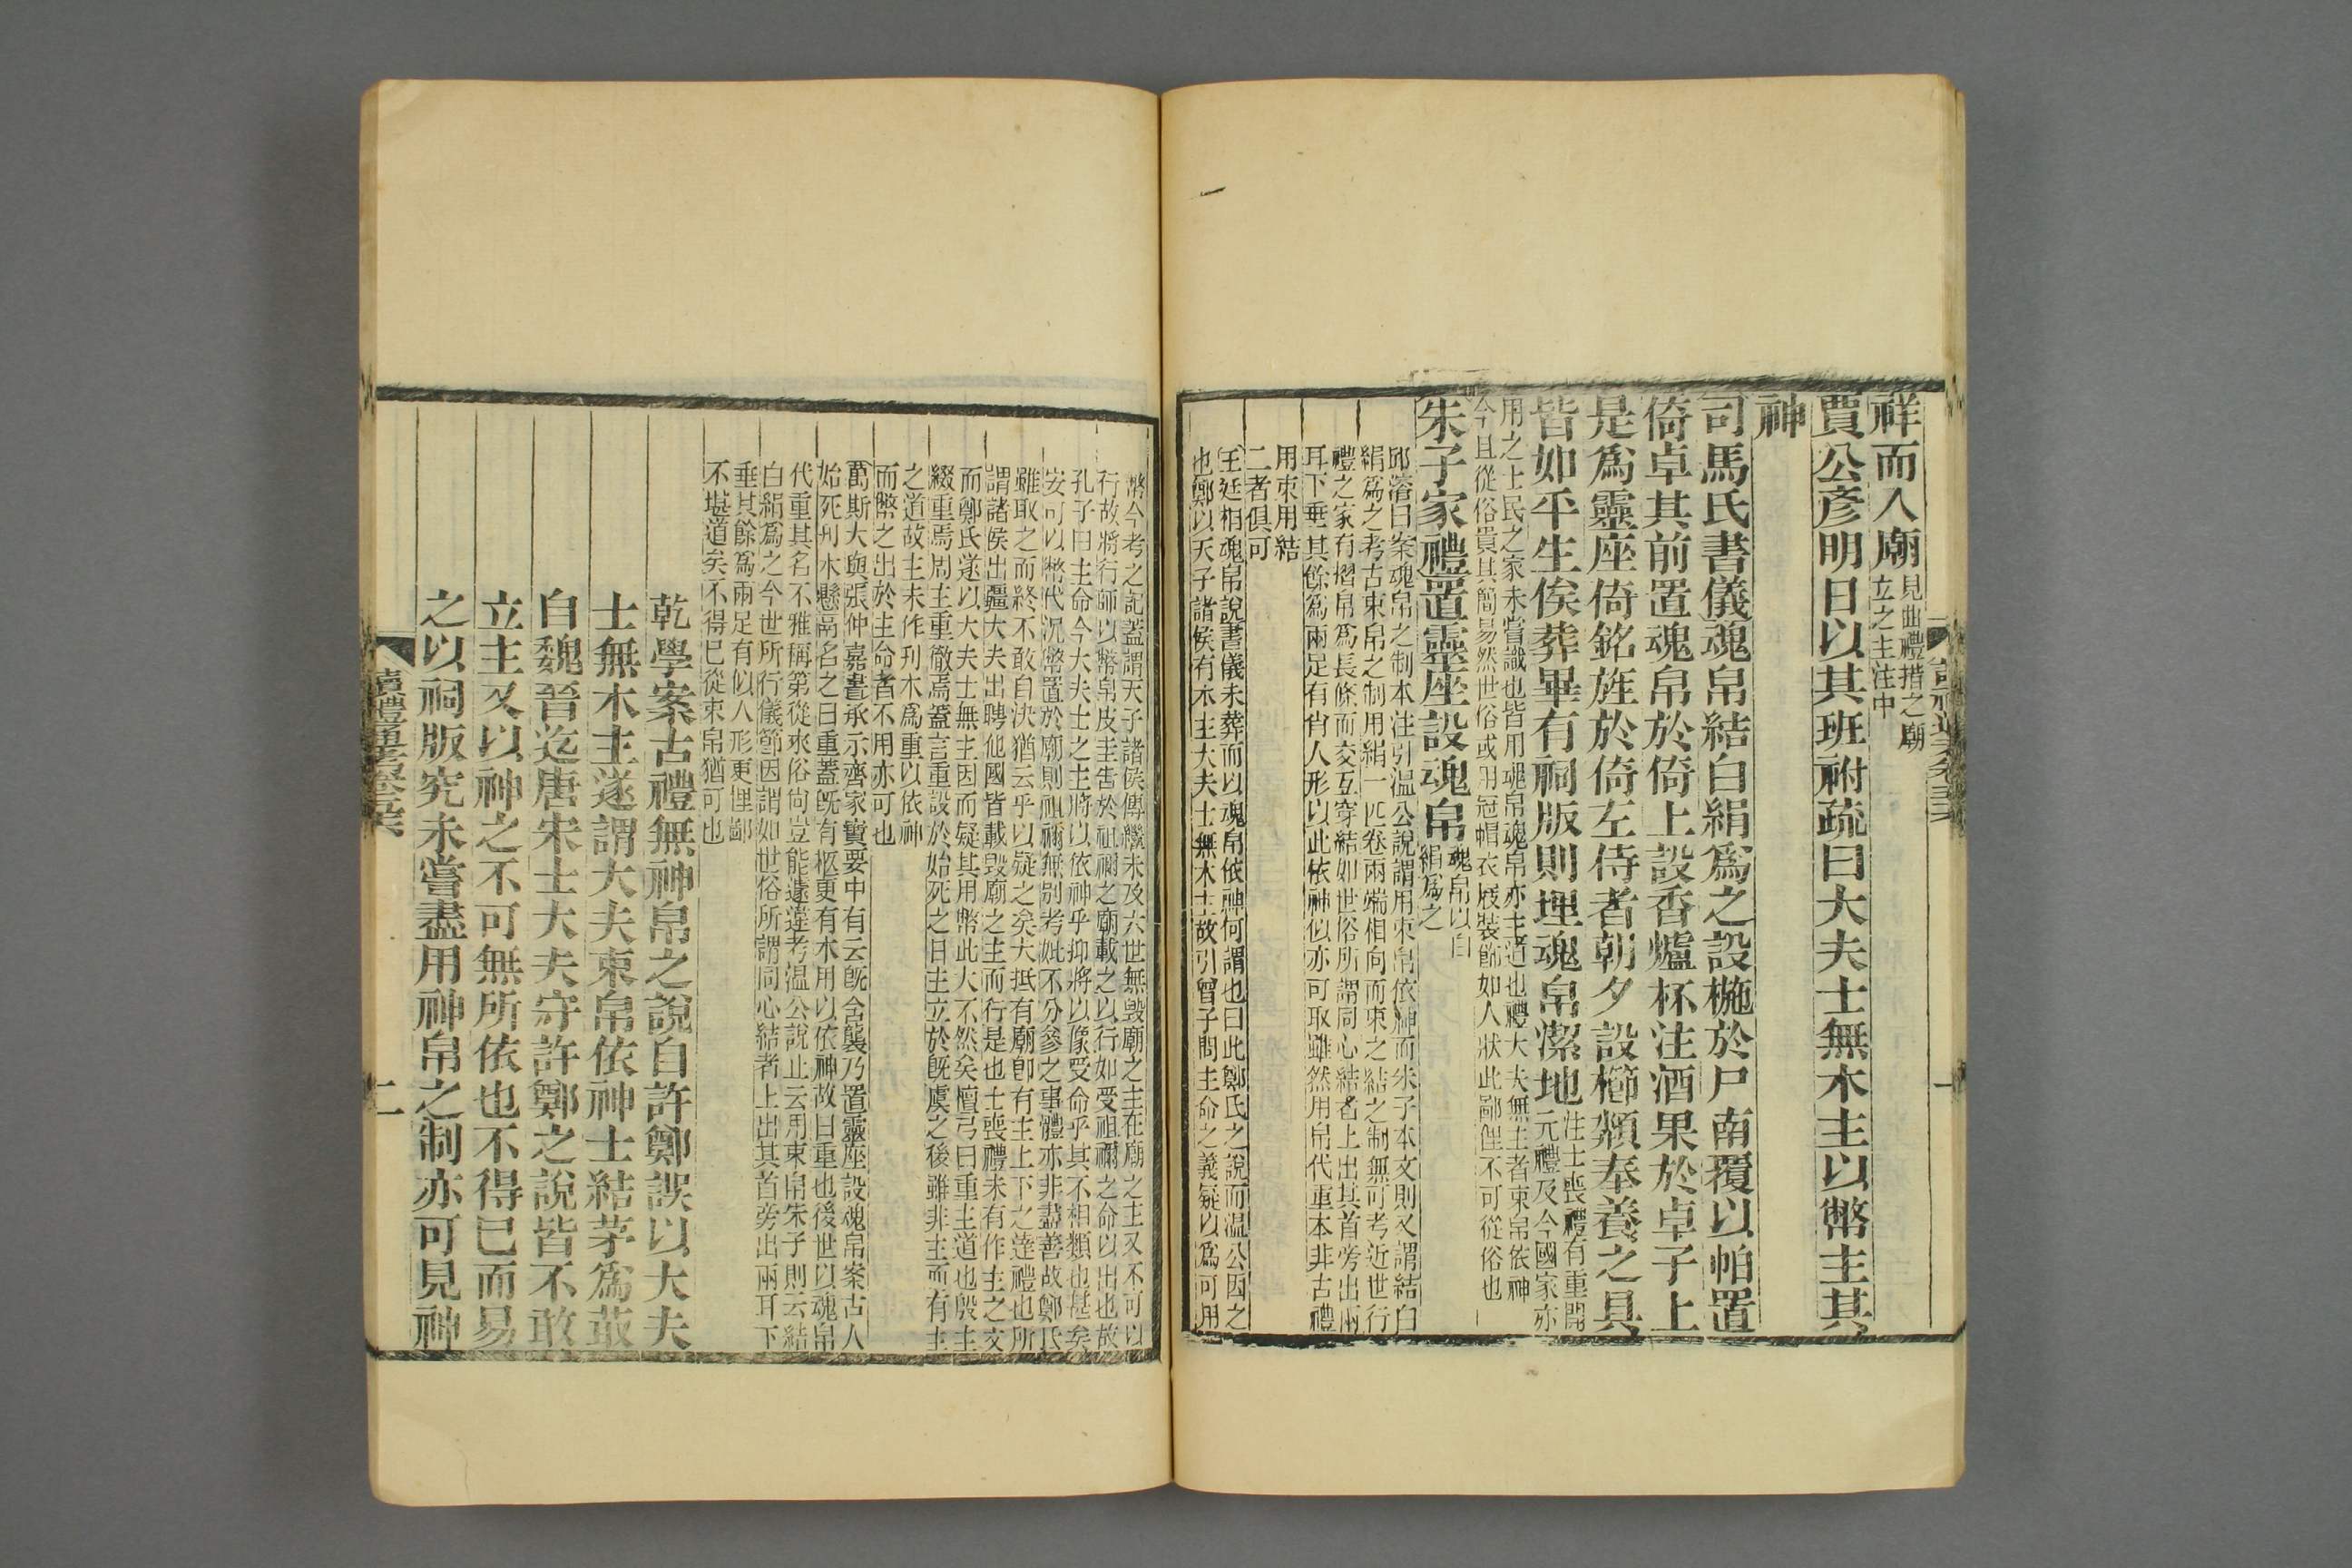 祥而入廟見曲禮措之廟
立之主注中
賈公彥明日以其班祔疏曰大夫士無木主以幣主其
神
司馬氏書儀魂帛結白絹爲之設椸於尸南覆以帕置
倚卓其前置魂帛於倚上設香爐杯注酒果於卓子上
是爲靈座倚銘旌於倚左侍者朝夕設櫛頮奉養之具
皆如平生俟葬畢有祠版則埋魂帛潔地注士喪禮有重開
元禮及今國家亦
用之士民之家未嘗識也皆用魂帛魂帛亦主道也禮大夫無主者束帛依神
今且從俗貴其簡易然世俗或用冠帽衣屐裝飾如人狀此鄙俚不可從俗也
朱子家禮置靈座設魂帛魂帛以白
絹爲之
邱濬曰案魂帛之制本注引温公說謂用束帛依神而朱子本文則又謂結白
絹爲之考古束帛之制用絹一匹卷兩端相向而束之結之制無可考近世行
禮之家有摺帛爲長條而交互穿結如世俗所謂同心結者上出其首旁出兩
耳下垂其餘爲兩足有肖人形以此依神似亦可取雖然用帛代重本非古禮
用束用結
二者俱可
王廷相魂帛說書儀未葬而以魂帛依神何謂也曰此鄭氏之說而温公因之
也鄭以天子諸侯有木主大夫士無木主故引曾子問主命之義疑以爲可用
幣今考之記蓋謂天子諸侯傳繼未及六世無毀廟之主在廟之主又不可以
行故將行師以幣帛皮圭告於祖禰之廟載之以行如受祖禰之命以出也故
孔子曰主命今大夫士之主將以依神乎抑將以像受命乎其不相類也甚矣
安可以幣代況幣置於廟則祖禰無别考妣不分參之事體亦非盡善故鄭氏
雖取之而終不敢自決猶云乎以疑之矣大抵有廟卽有主上下之達禮也所
謂諸侯出疆大夫出聘他國皆載毀廟之主而行是也士喪禮未有作主之文
而鄭氏遂以大夫士無主因而疑其用幣此大不然矣檀弓曰重主道也殷主
綴重焉周主重徹焉蓋言重設於始死之日主立於旣虞之後雖非主而有主
之道故主未作刋木爲重以依神
而幣之出於主命者不用亦可也
萬斯大與張仲嘉書承示齊家寶要中有云旣含襲乃置靈座設魂帛案古人
始死刋木懸鬲名之曰重蓋旣有柩更有木用以依神故曰重也後世以魂帛
代重其名不雅稱第從來俗尙豈能遽違考温公說止云用束帛朱子則云結
白絹爲之今世所行儀節因謂如世俗所謂同心結者上出其首旁出兩耳下
垂其餘爲兩足有似人形更俚鄙
不堪道矣不得已從束帛猶可也
乾學案古禮無神帛之說自許鄭誤以大夫
士無木主遂謂大夫束帛依神士結茅爲菆
自魏晉迄唐宋士大夫守許鄭之說皆不敢
立主又以神之不可無所依也不得已而易
之以祠版究未嘗盡用神帛之制亦可見神
讀禮通考卷五十六
二